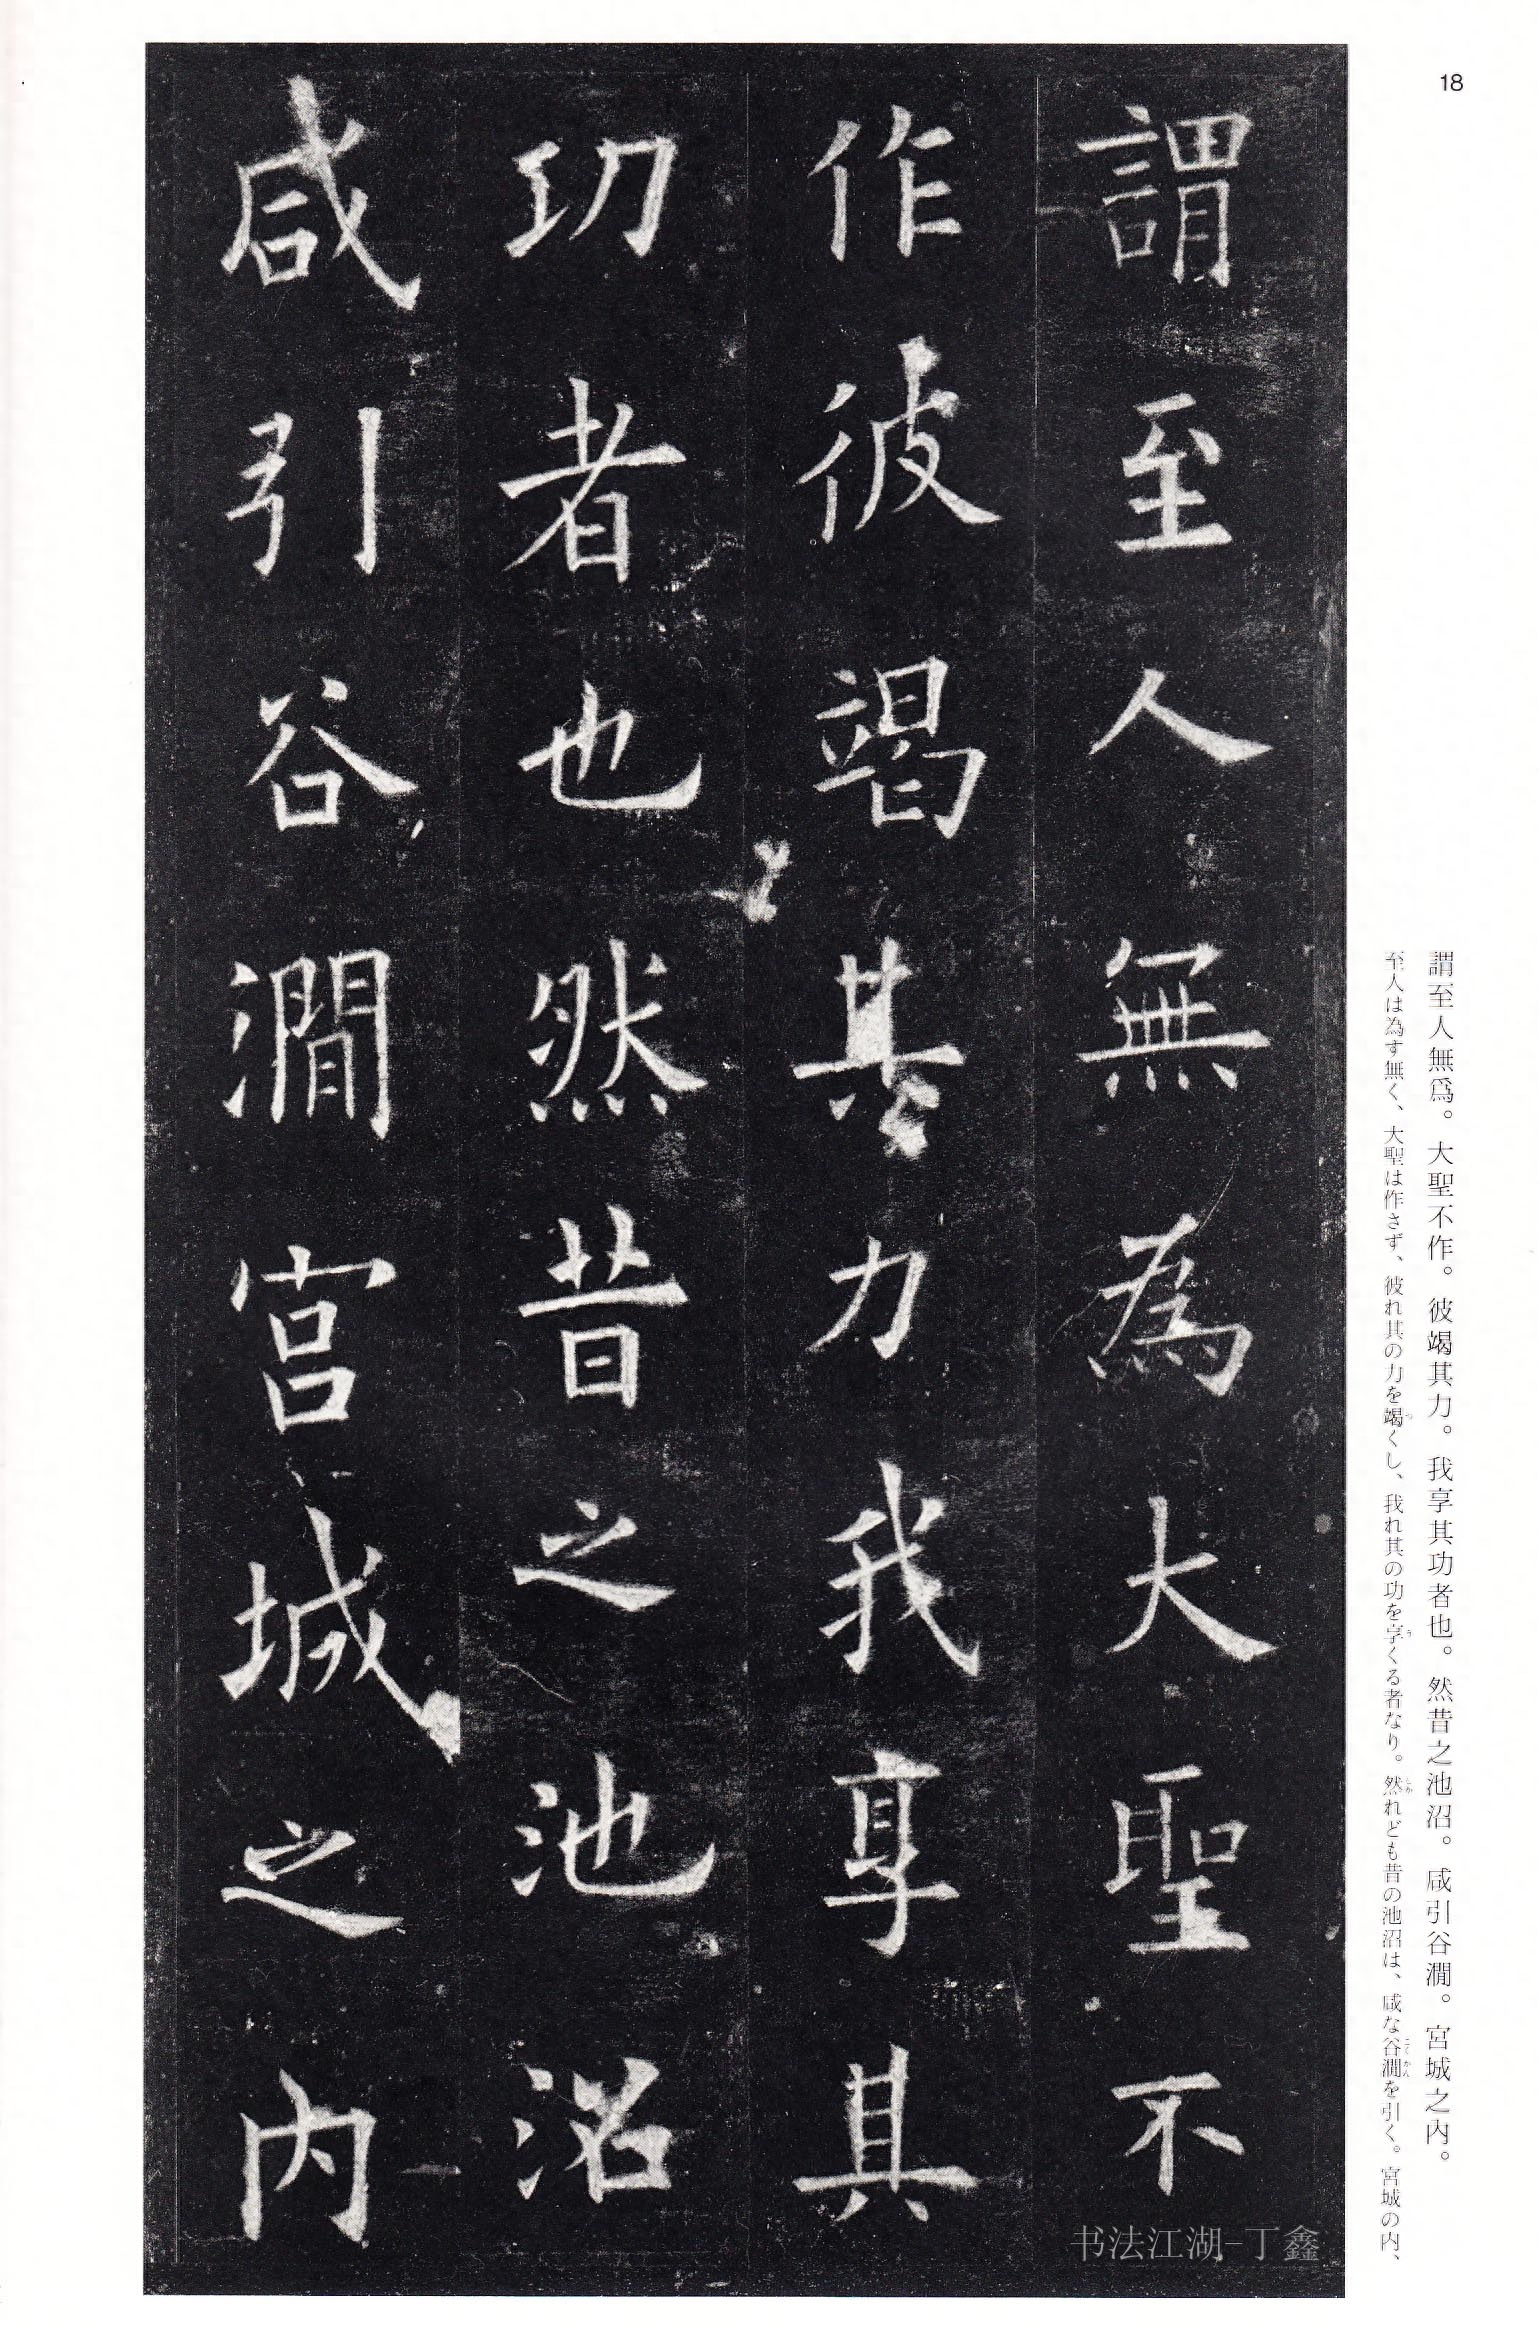 18
謂至人無爲。大聖不作。彼竭其力。我享其功者也。然昔之池沼。咸引谷澗。宮城之內。
至人は為す無く、大聖は作さず、彼れ其の力を竭くし、我れ其の功を享くる者なり。然れども昔の池沼は、咸な谷澗を引く。宮城の内、
謂至人無為大聖不
作彼竭其力我享其
功者也然昔之池沼
咸引谷澗宮城之內
书法江湖-丁鑫